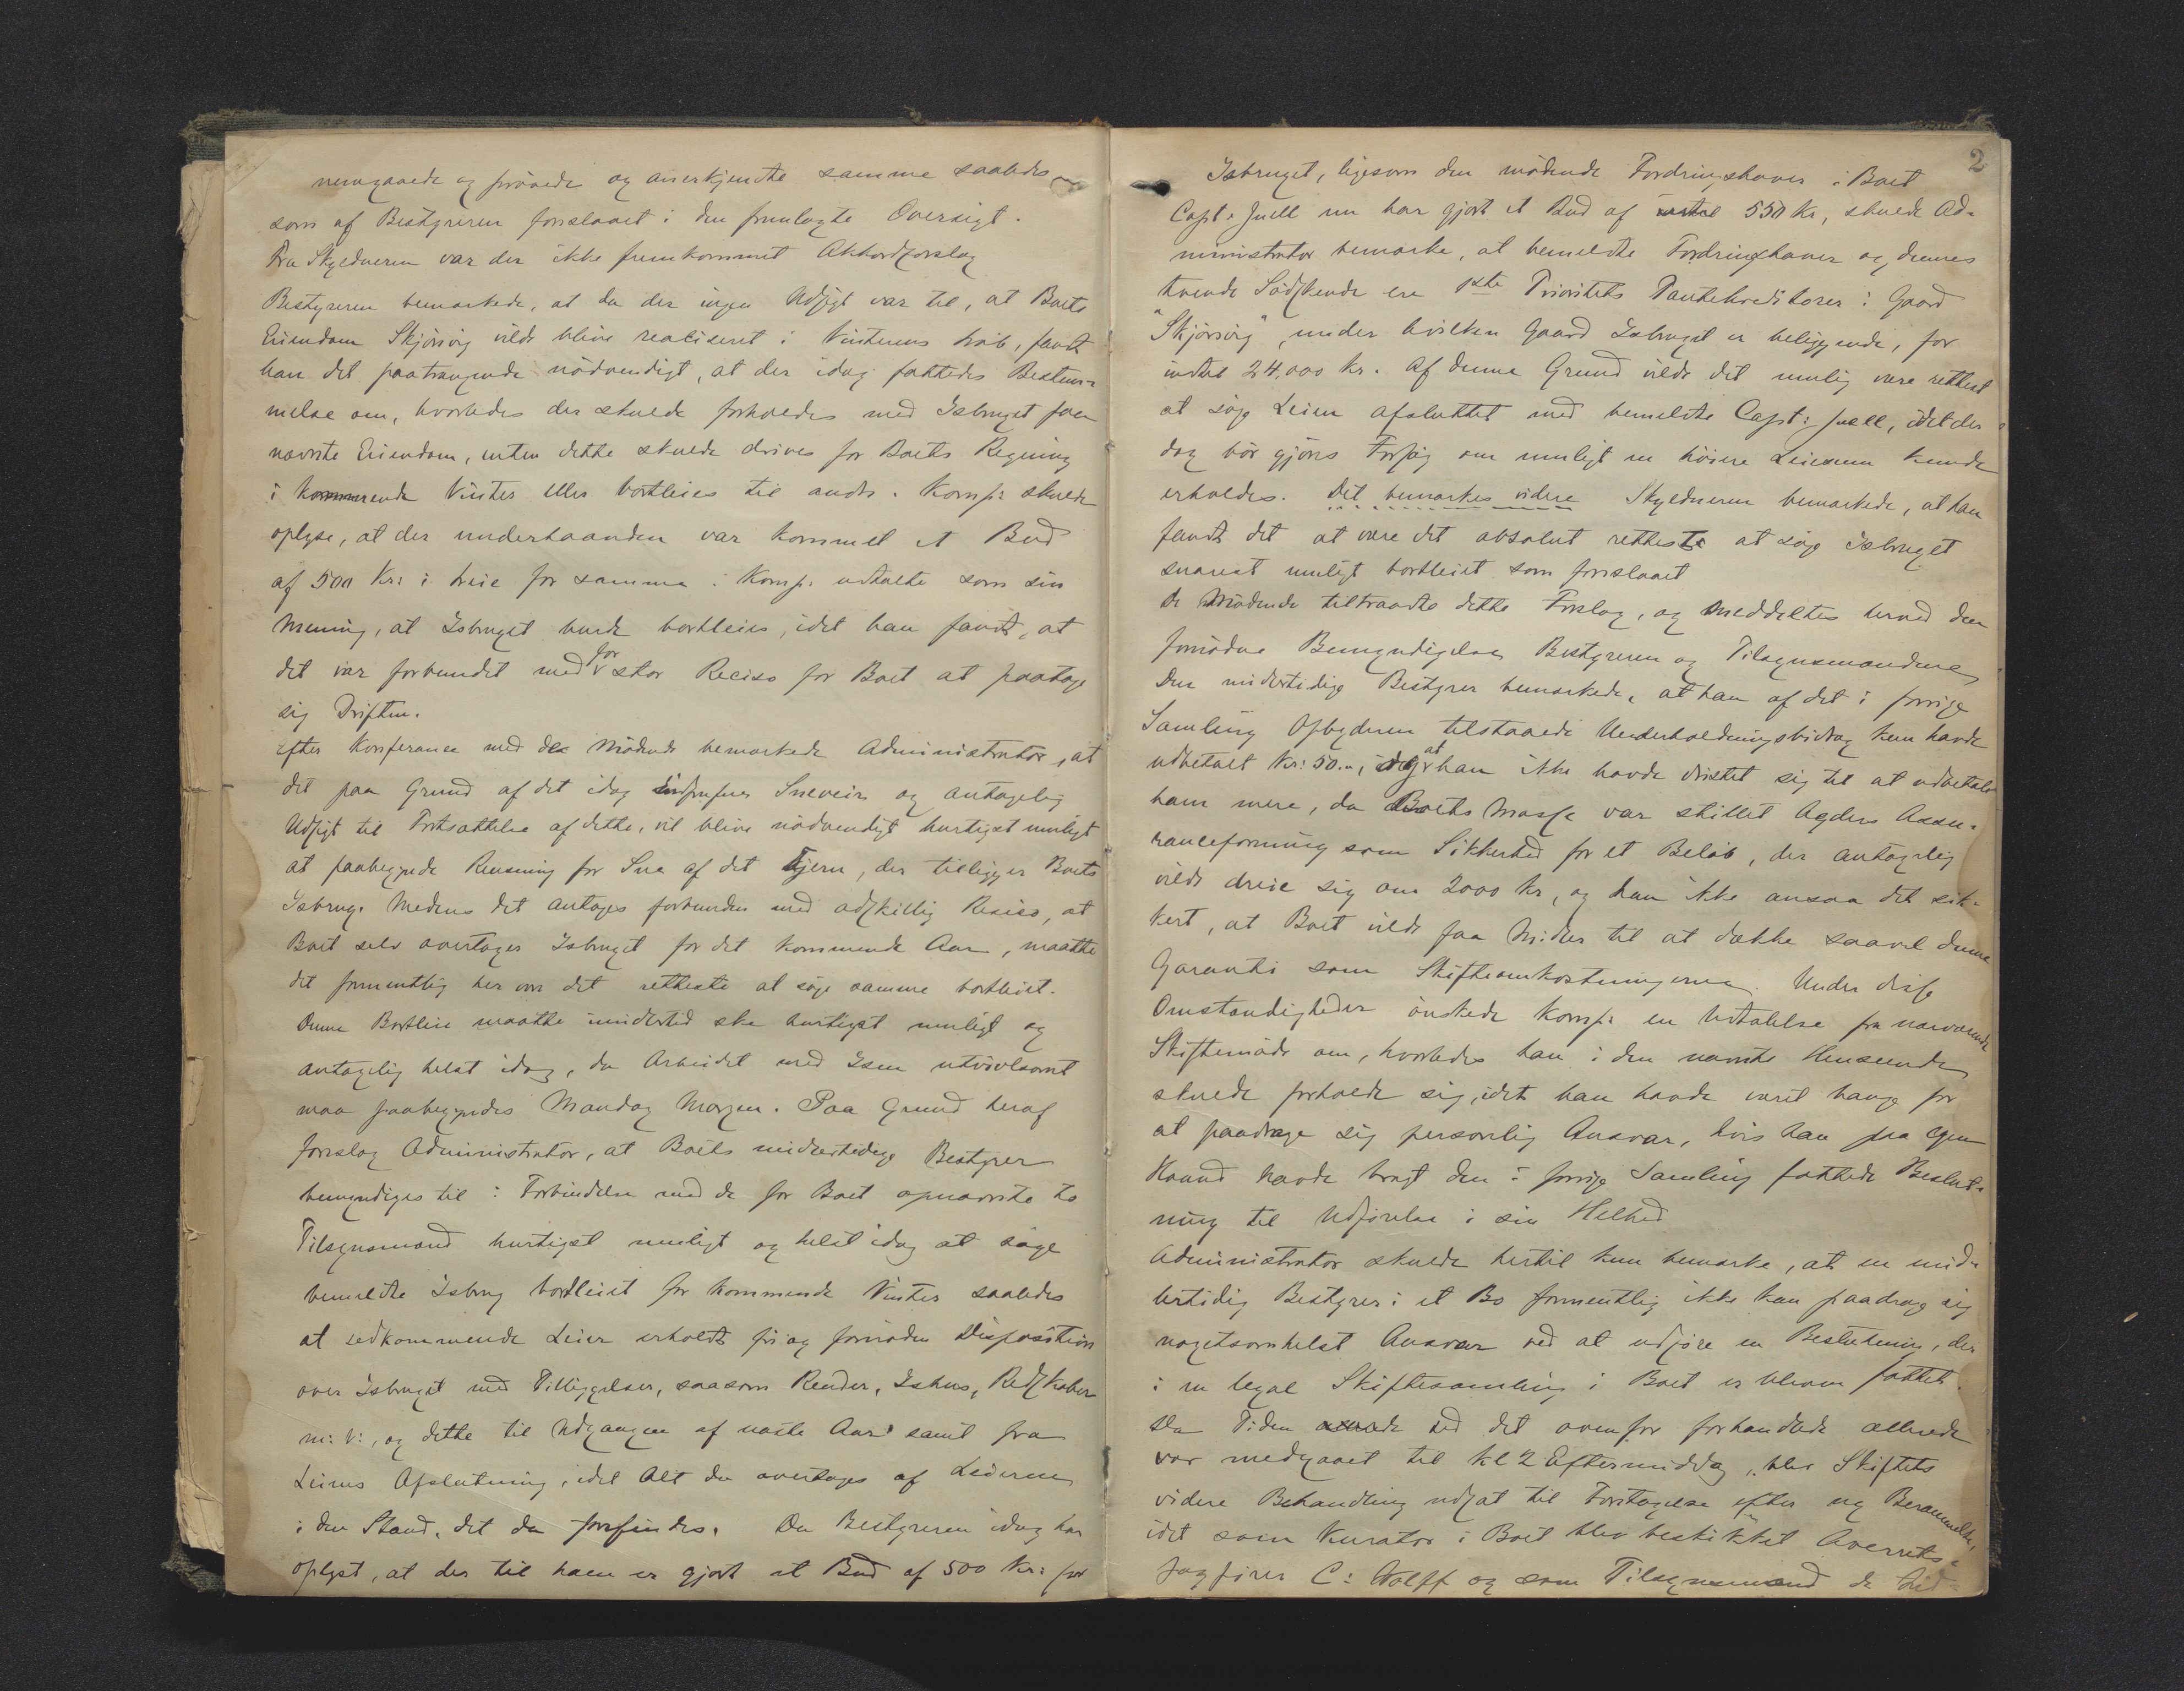 nemgaaede og prövede og anerkjendte samme saaledes
som af Bestyreren foreslaaet i den fremlagte Oversigt.
Fra Skyldneren var der ikke fremkommet Akkordforslag
Bestyreren bemærkede, at da der ingen Udsigt var til, at Boets
Eiendom Skjörvig vilde blive realiseret i Vinterens Löb, fandt
han det paatrængende nödvendigt, at der idag fattedes Bestem-
melse om, hvorledes der skulde forholdes med Isbruget paa
nævnte Eiendom, enten dette skulde drives for Boets Regning
i kommende Vinter eller bortleies til andre. Komp: skulde
oplyse, at der underhaanden var kommet et Bud
af 500 Kr: i Leie for samme. Komp: udtalte som sin
Mening, at Isbruget burde bortleies, idet han fandt, at
det var forbundet med for stor Reciso for Boet at paatage
sig Driften.
Efter Konferance med de Mödende bemærkede Administrator, at
det paa Grund af det idag indtrufne Sneveir og antagelig
Udsigt til Fortsættelse af dette, vil blive nödvendigt hurtigst muligt
at paabegynde Rensning for Sne af det Tjern, der tilligger Boets
Isbrug. Medens det antages forbunden med adskillig Resiso, at
Boet selv overtager Isbruget for det kommende Aar, maatte
det formentlig her være det retteste at söge samme bortleiet.
Denne Bortleie maatte imidlertid ske hurtigst muligt og
antagelig helst idag, da Arbeidet med Isen utvivlsomt
maa paabegyndes Mandag Morgen. Paa Grund heraf
foreslog Administrator, at Boets midlertidige Bestyrer
bemyndiges til i Forbindelse med de for Boet opnævnte to
Tilsynsmænd hurtigst muligt og helst idag at söge
bemeldte Isbrug bortleiet for kommende Vinter saaledes
at vedkommende Leier erholdt fri og fornöden Disposition
over Isbruget med Tilliggelser, saasom Render, Ishus, Redskaber
m: V:, og dette til Udgangen af næste Aar samt fra
Leiens Afslutning, idet Alt da overtages af Leieren
i den Stand, det da forefindes. Da Bestyreren idag har
oplyst, at der til ham er gjort et Bud af 500 Kr: for
2
Isbruget, ligesom den mödende Fordringshaver i Boet
Capt: Juell nu har gjort et Bud af indtil 550 Kr, skulde Ad-
ministrator bemærke, at bemeldte Fordringshaver og dennes
tvende Södskende ere 1ste Prioritets Pantekreditorer i Gaard
"Skjörvig", under hvilken Gaard Isbruget er beliggende, for
indtil 24,000 Kr. Af denne Grund vilde det mulig være rettest
at söge Leien afsluttet med bemeldte Capt: Juell, idet der
dog bör gjöres Forsög om muligt en höiere Leiesum kunde
erholdes. Det bemærkes videre Skyldneren bemærkede, at han
fandt det at være det absolut retteste at söge Isbruget
snarest muligt bortleiet som foreslaaet
De Mödende tiltraadte dette Forslag, og meddeltes herved den
fornödne Bemyndigelse Bestyreren og Tilsynsmændene
Den midlertidige Bestyrer bemærkede, at han af det i forrige
Samling Opbyderen tilstaaede Underholdningsbidrag kun havde
udbetalt Kr: 50.-, og at han ikke havde dristet sig til at udbetale
ham mere, da Boets Masse var stillet Agders Assu-
ranceforening som Sikkerhed for et Belöb, der antagelig
vilde dreie sig om 2000 Kr, og han ikke ansaa det sik-
kert, at Boet vilde faa Midler til at dække saavel denne
Garanti som Skifteomkostningerne. Under disse
Omstændigheder önskede Komp: en Udtalelse fra nærværende
Skiftemöde om, hvorledes han i den nævnte Henseende
skulde forholde sig, idet han havde været bange for
at paadrage sig personlig Ansvar, hvis han paa egen
Haand havde bragt den i forrige Samling fattede Beslut-
ning til Udförelse i sin Helhed
Administrator skulde hertil kun bemærke, at en mid-
lertidig Bestyrer i et Bo formentlig ikke kan paadrage sig
nogetsomhelst Ansvar ved at udföre en Beslutning, der
i en legal Skiftesamling i Boet er bleven fattet.
Da Tiden ved det ovenfor forhandlede allerede
var medgaaet til Kl 2 Eftermiddag, blev Skiftets
videre Behandling udsat til Foretagelse efter ny Berammelse,
idet som Kurator i Boet blev beskikket Overrets-
sagförer C: Wolff og som Tilsynsmænd de tid-